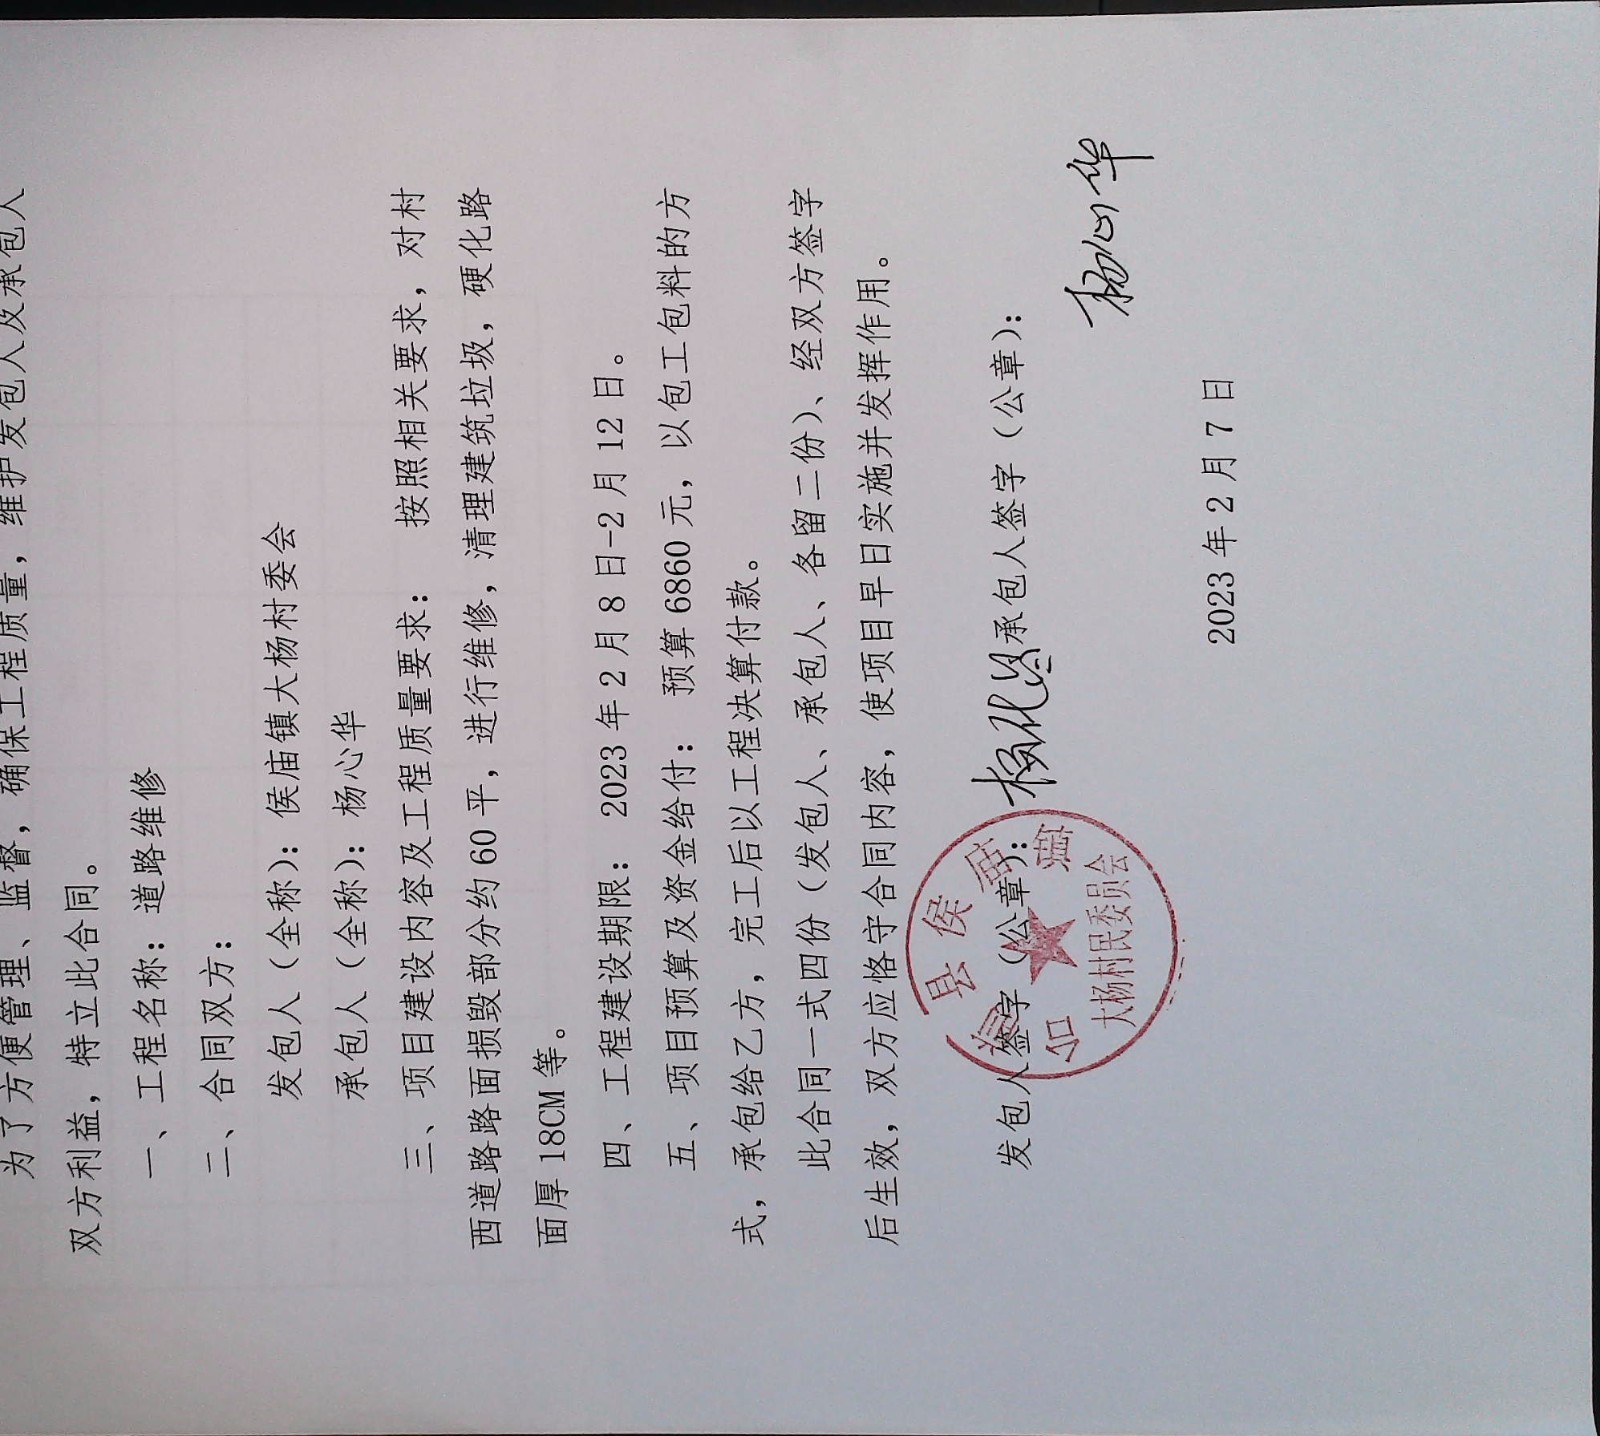 为了方便管理、监督，确保工程质量，维护发包人及承包人
双方利益，特立此合同。
一、工程名称：道路维修
二、合同双方：
发包人（全称）：侯庙镇大杨村委会
承包人（全称）：杨心华
三、项目建设内容及工程质量要求： 按照相关要求，对村
西道路路面损毁部分约 60 平，进行维修，清理建筑垃圾，硬化路
面厚 18CM 等。
四、工程建设期限： 2023 年 2 月 8 日-2 月 12 日。
五、项目预算及资金给付： 预算 6860 元，以包工包料的方
式，承包给乙方，完工后以工程决算付款。
此合同一式四份（发包人、承包人、各留二份）、经双方签字
后生效，双方应恪守合同内容，使项目早日实施并发挥作用。
发包人签字（公章）： 承包人签字（公章）：
县侯庙镇
大杨村民委员会
杨心华
2023 年 2 月 7 日